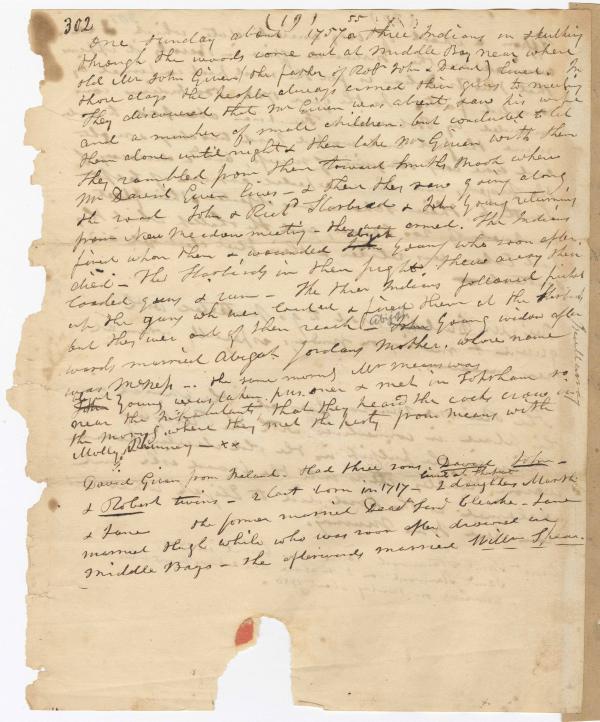 302
(19)
55
One Sunday about 1757 three Indians in skulking
through the woods came out at Middle Bay near where
old Mr John Given (the father of Robt John & David) lived. In
those days the people always carried their guns to meeting
They discovered that Mr Given was absent, save his wife
and a number of small children. but concluded to let
them alone until night & then take Mr Given with them
they rambled from then toward Smiths Brook where
Mr David Given lives - & then they saw going along
the road John & Richd Starbird & John Young returning
from New Meadows meeting - they were armed. The Indians
fired upon them & wounded Abijah Young who soon after
died - The Starbirds in their fright, threw away their
loaded guns & run - The three Indians followed picked
up the guns wh were loaded & fired them at the Starbirds
but they were out of their reach - Abijah Young widow after
wards married Abigah Jordans Mother. whose name
was - the same morng Mr means was
Young was taken prisoner & met in Topsham so
near the inhabitants that they heard the cock crow in
the morng where they met the party from Means with
Molly Finney - xx
David Given from Ireland. Had three sons David John -
& Robert twins - 2 last born in 1717 - 2 daughters Martha
& Jane the former married Dead Saml Clarke - Jane
married Hugh White who was soon after drowned in
Middle Bays - She afterwards married Willm Spear.